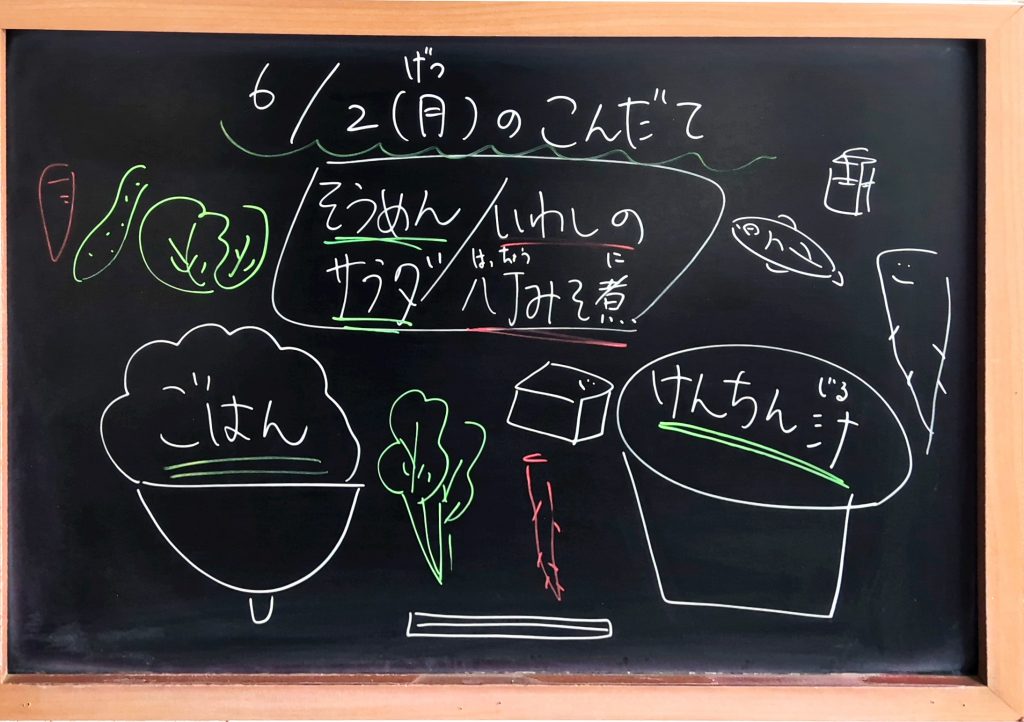 げつ
6/2(月)のこんだて
そうめん
サラダ
いわしの
はっちょう に
八丁みそ煮
ごはん
じる
けんちん汁